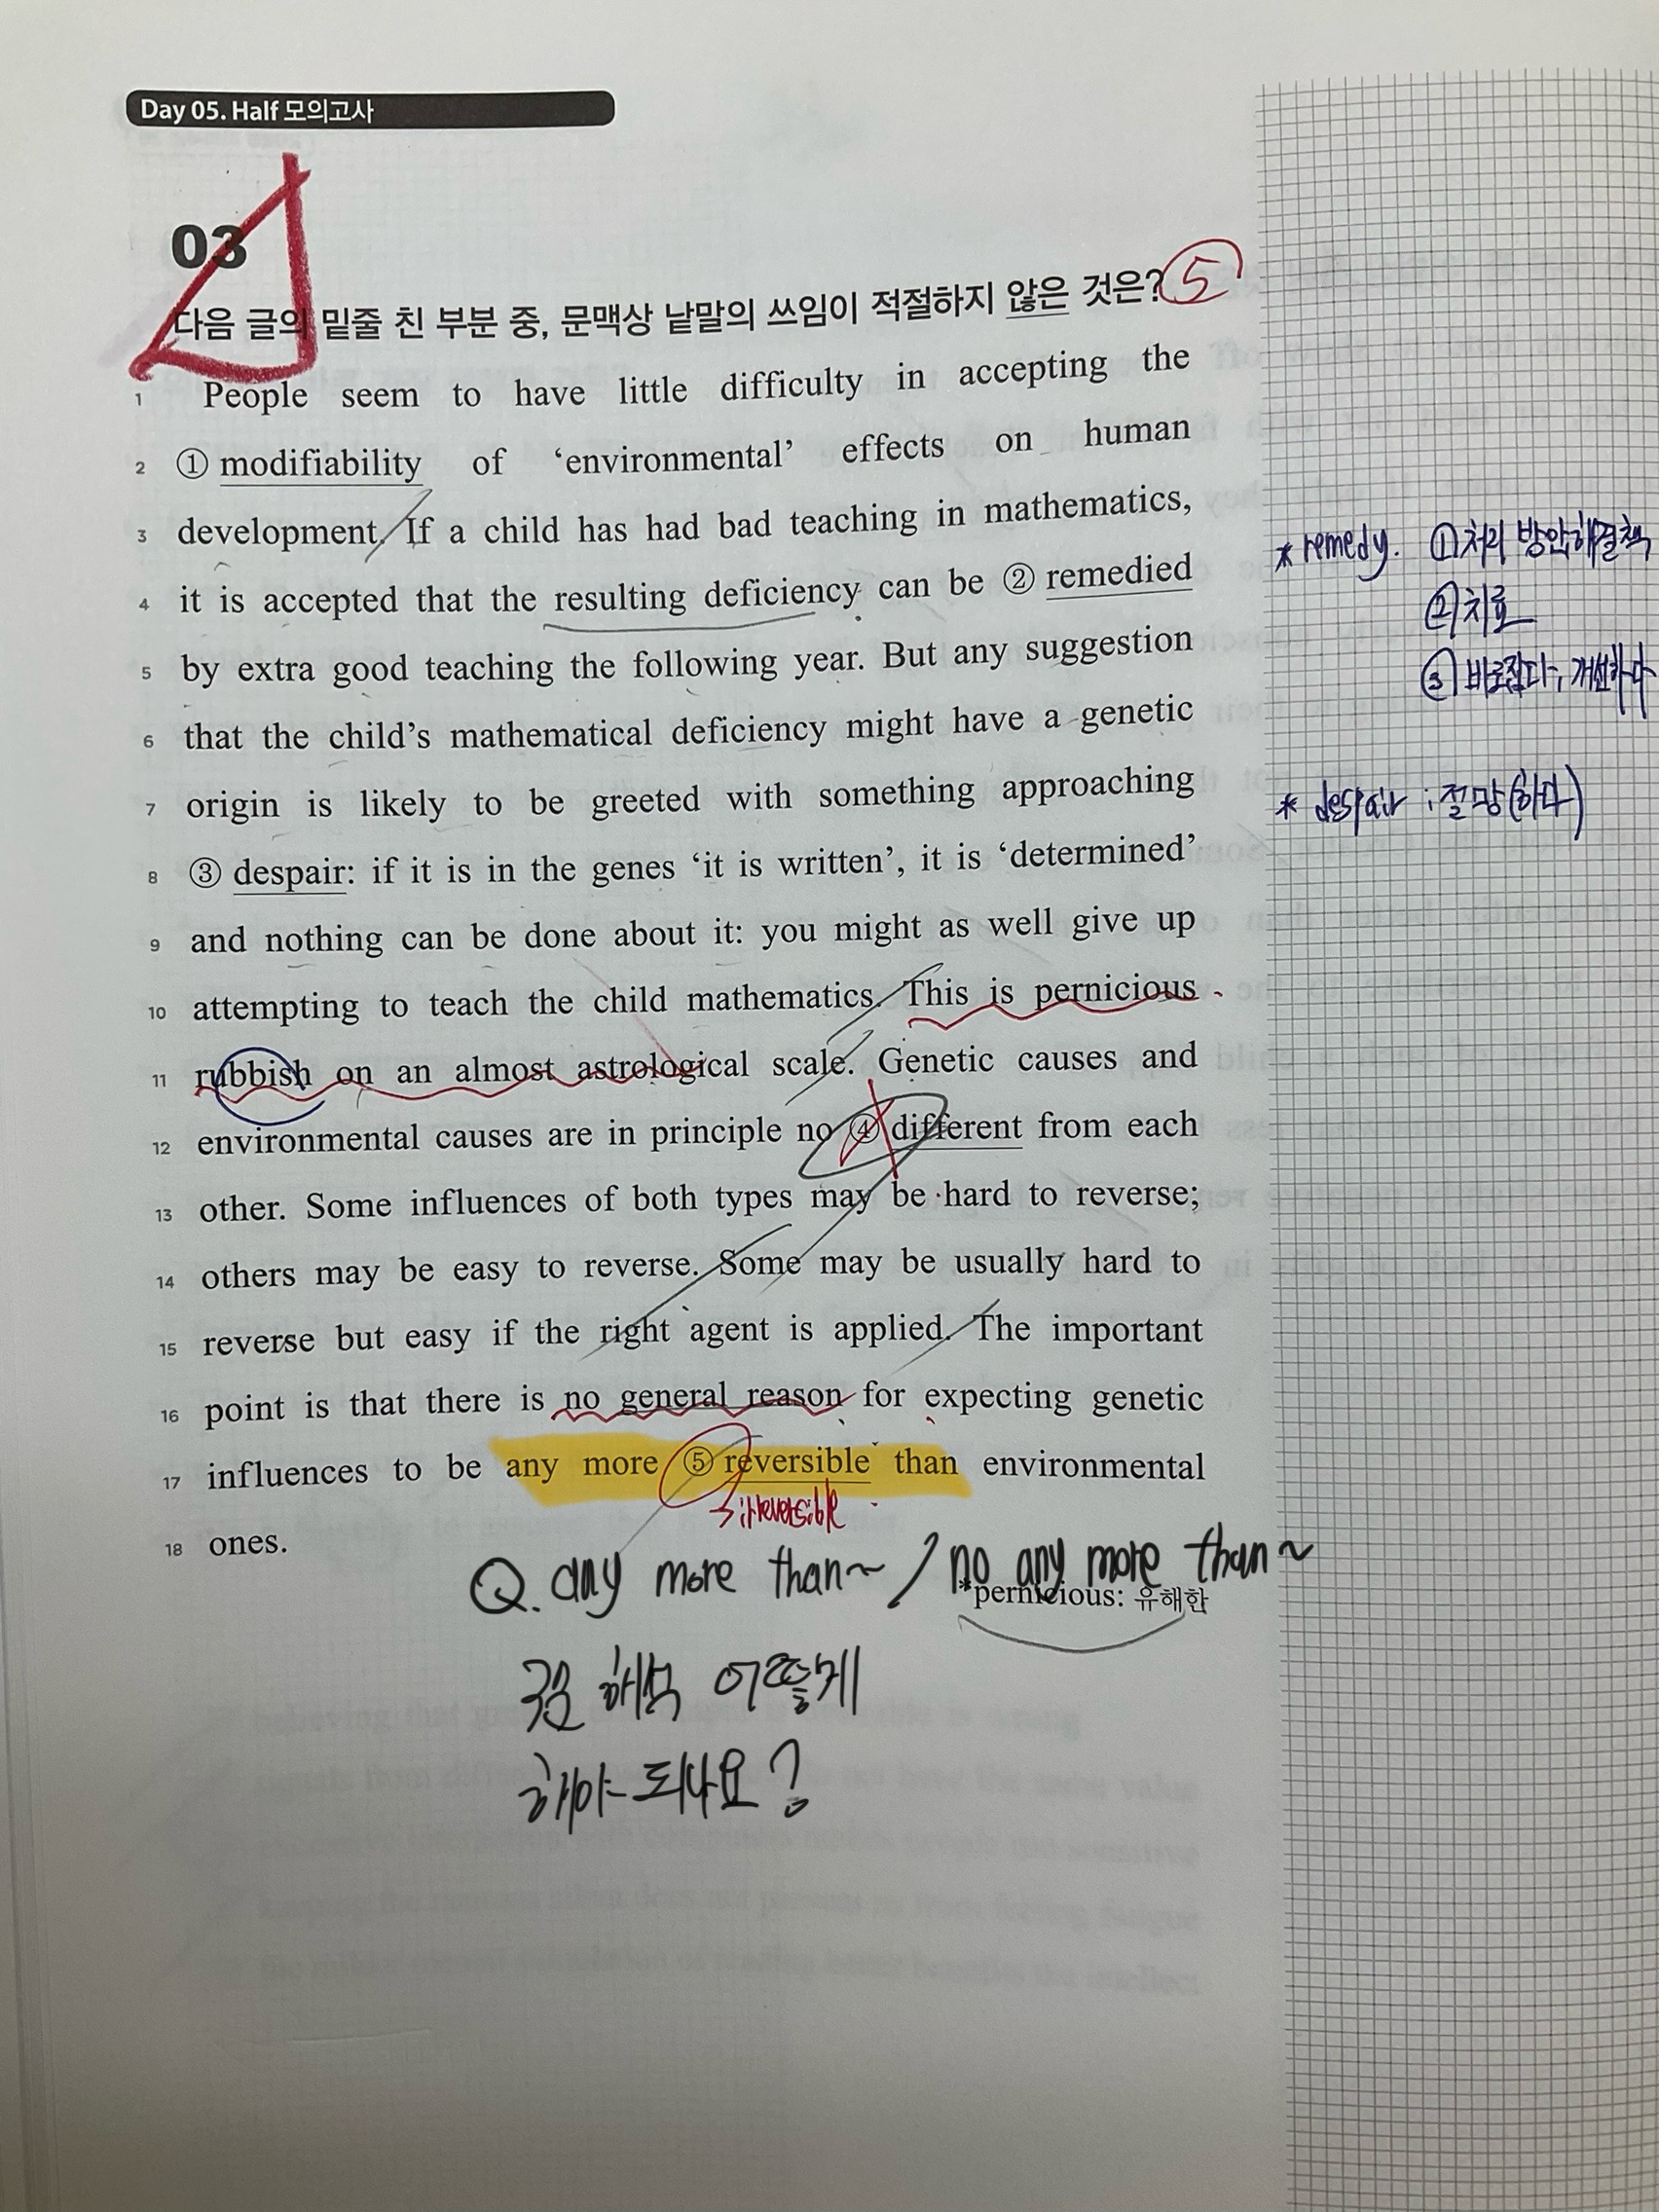 Day 05. Half 모의고사
03
다음 글의 밑줄 친 부분 중, 문맥상 낱말의 쓰임이 적절하지 않은 것은? 5
1 People seem to have little difficulty in accepting the
2 ① modifiability of ‘environmental’ effects on human
3 development. If a child has had bad teaching in mathematics,
4 it is accepted that the resulting deficiency can be ② remedied
5 by extra good teaching the following year. But any suggestion
6 that the child’s mathematical deficiency might have a genetic
7 origin is likely to be greeted with something approaching
8 ③ despair: if it is in the genes ‘it is written’, it is ‘determined’
9 and nothing can be done about it: you might as well give up
10 attempting to teach the child mathematics. This is pernicious
11 rubbish on an almost astrological scale. Genetic causes and
12 environmental causes are in principle no ④ different from each
13 other. Some influences of both types may be hard to reverse;
14 others may be easy to reverse. Some may be usually hard to
15 reverse but easy if the right agent is applied. The important
16 point is that there is no general reason for expecting genetic
17 influences to be any more ⑤ reversible than environmental
→irreversible
18 ones.
*pernicious: 유해한
* remedy. ① 처리 방안, 해결책
② 치료
③ 바로잡다, 개선하다
* despair : 절망(하다)
Q. any more than~ / no any more than~
구문 해석 어떻게
해야 되나요?